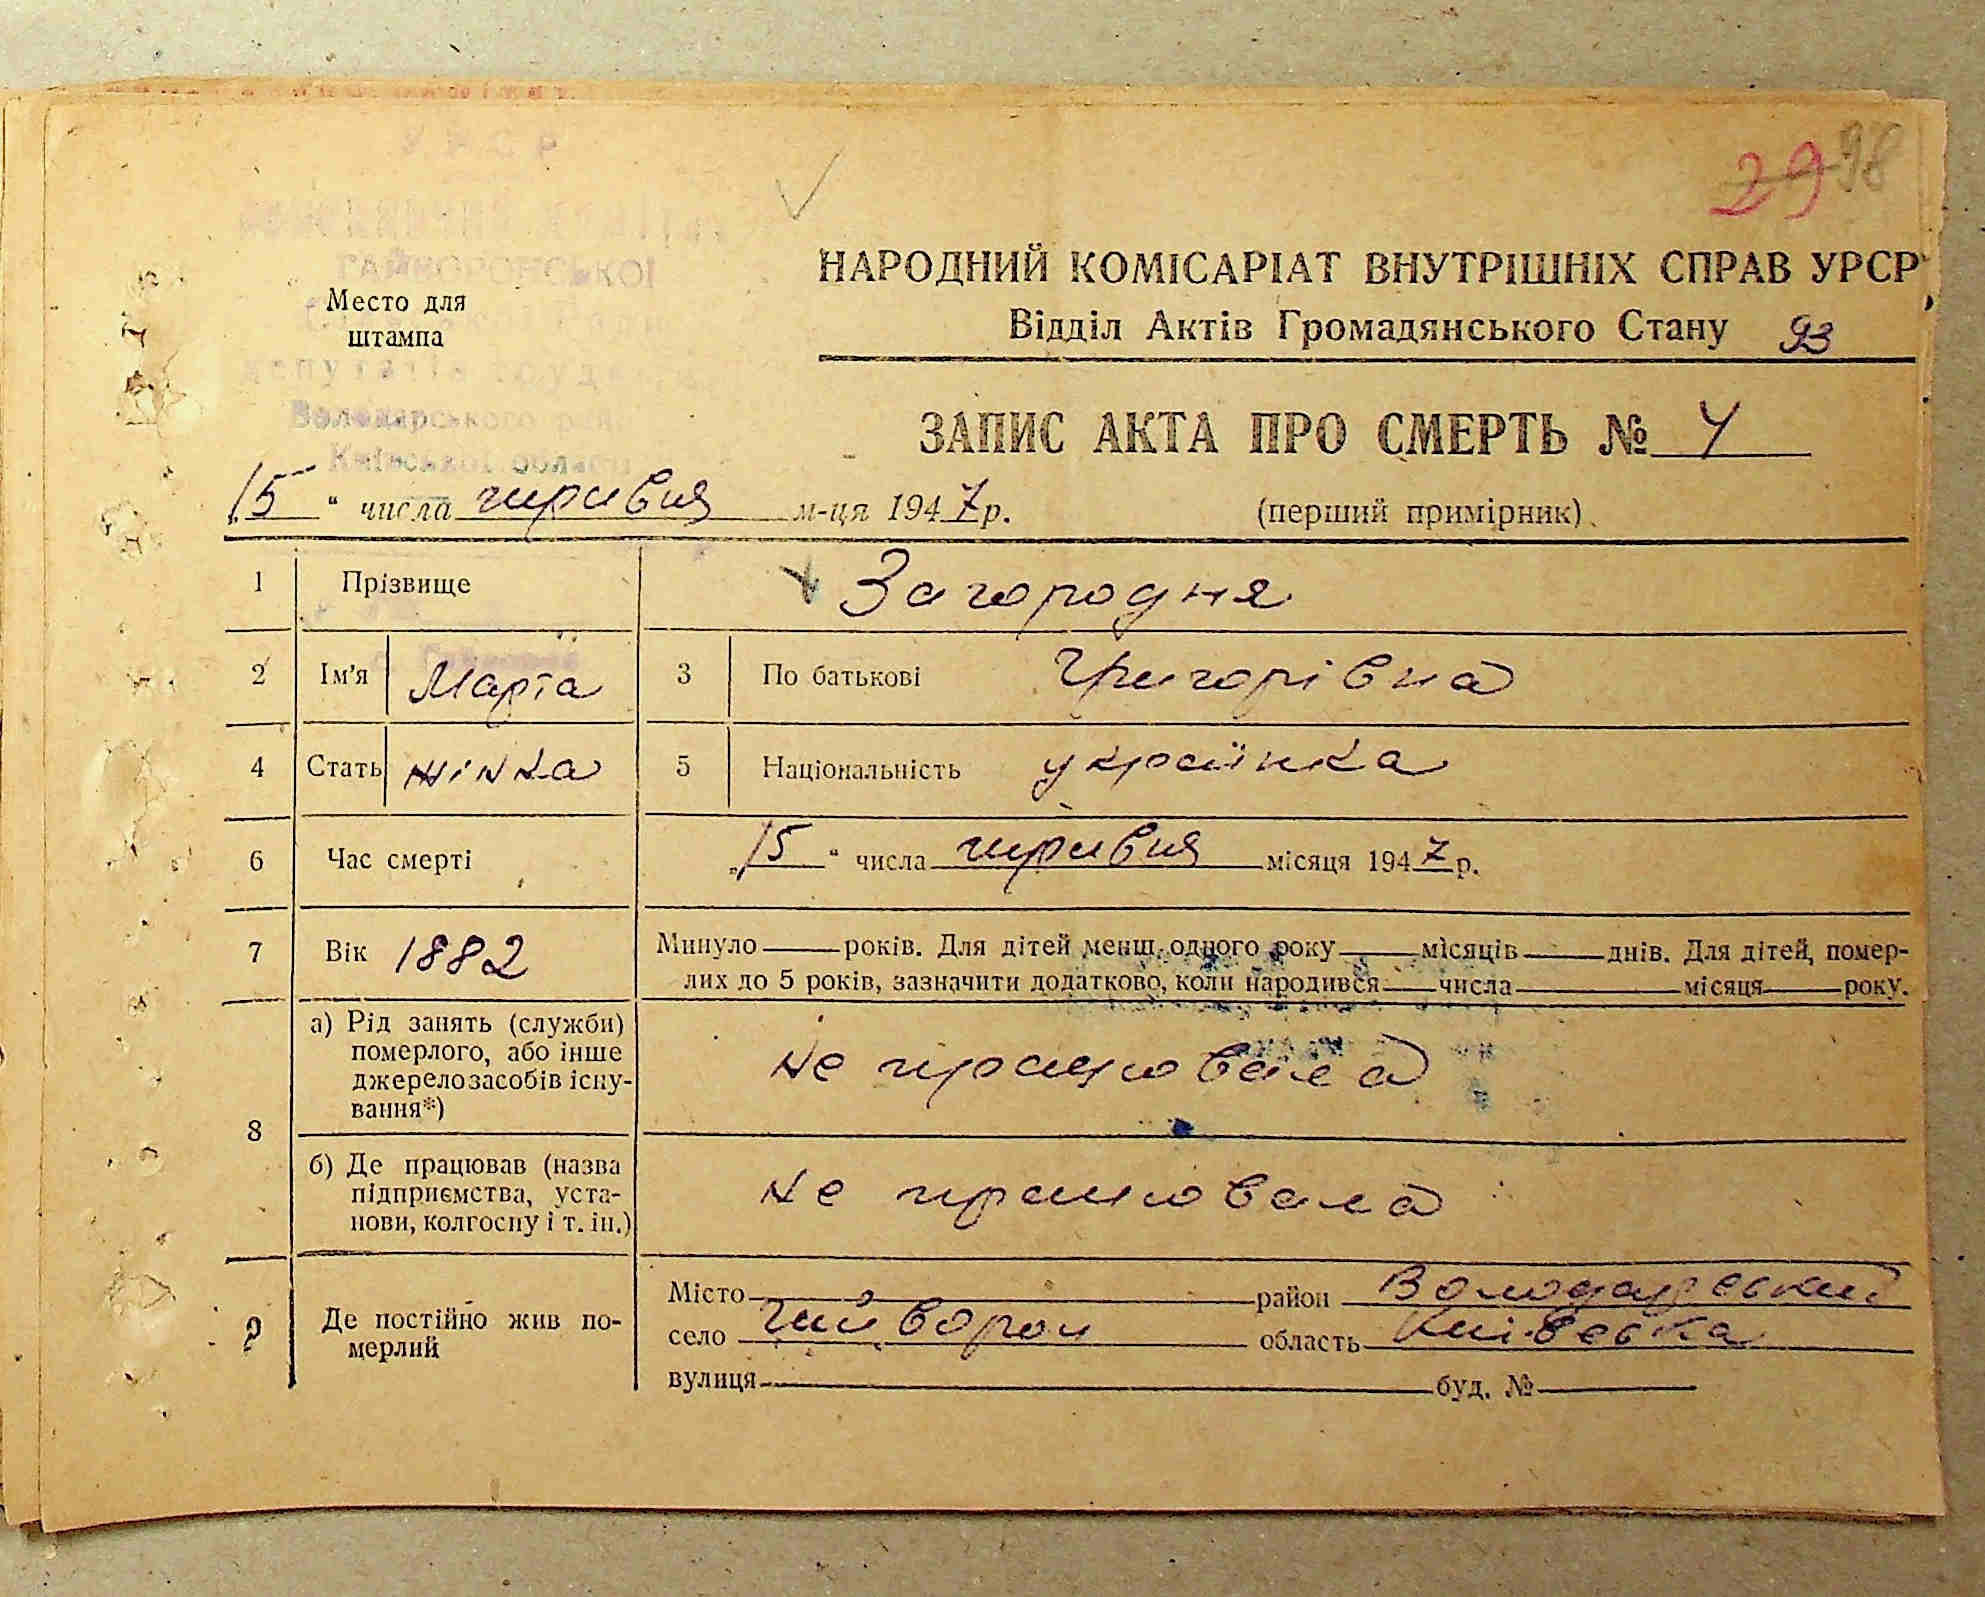 29 98
УРСР
ГАЙВОРОНСЬКОЇ
Володарського рай.
Київської області
Место для
штампа
НАРОДНИЙ КОМІСАРІАТ ВНУТРІШНІХ СПРАВ УРСР
Відділ Актів Громадянського Стану 93
ЗАПИС АКТА ПРО СМЕРТЬ № 4
„15“ числа чиривня м-ця 1947 р. (перший примірник)
1 Прізвище Загородня
2 Ім'я Марта 3 По батькові Григорівна
4 Стать жінка 5 Національність українка
6 Час смерті „15“ числа чиривня місяця 1947 р.
7 Вік 1882 Минуло років. Для дітей менш. одного року місяців днів. Для дітей, помер-
лих до 5 років, зазначити додатково, коли народився числа місяця року.
8 а) Рід занять (служби)
померлого, або інше
джерело засобів існу-
вання*)
не працювала
б) Де працював (назва
підприємства, уста-
нови, колгоспу і т. ін.)
не працювала
9 Де постійно жив по-
мерлий
Місто район Володарський
село Гайворон область Київська
вулиця буд. №